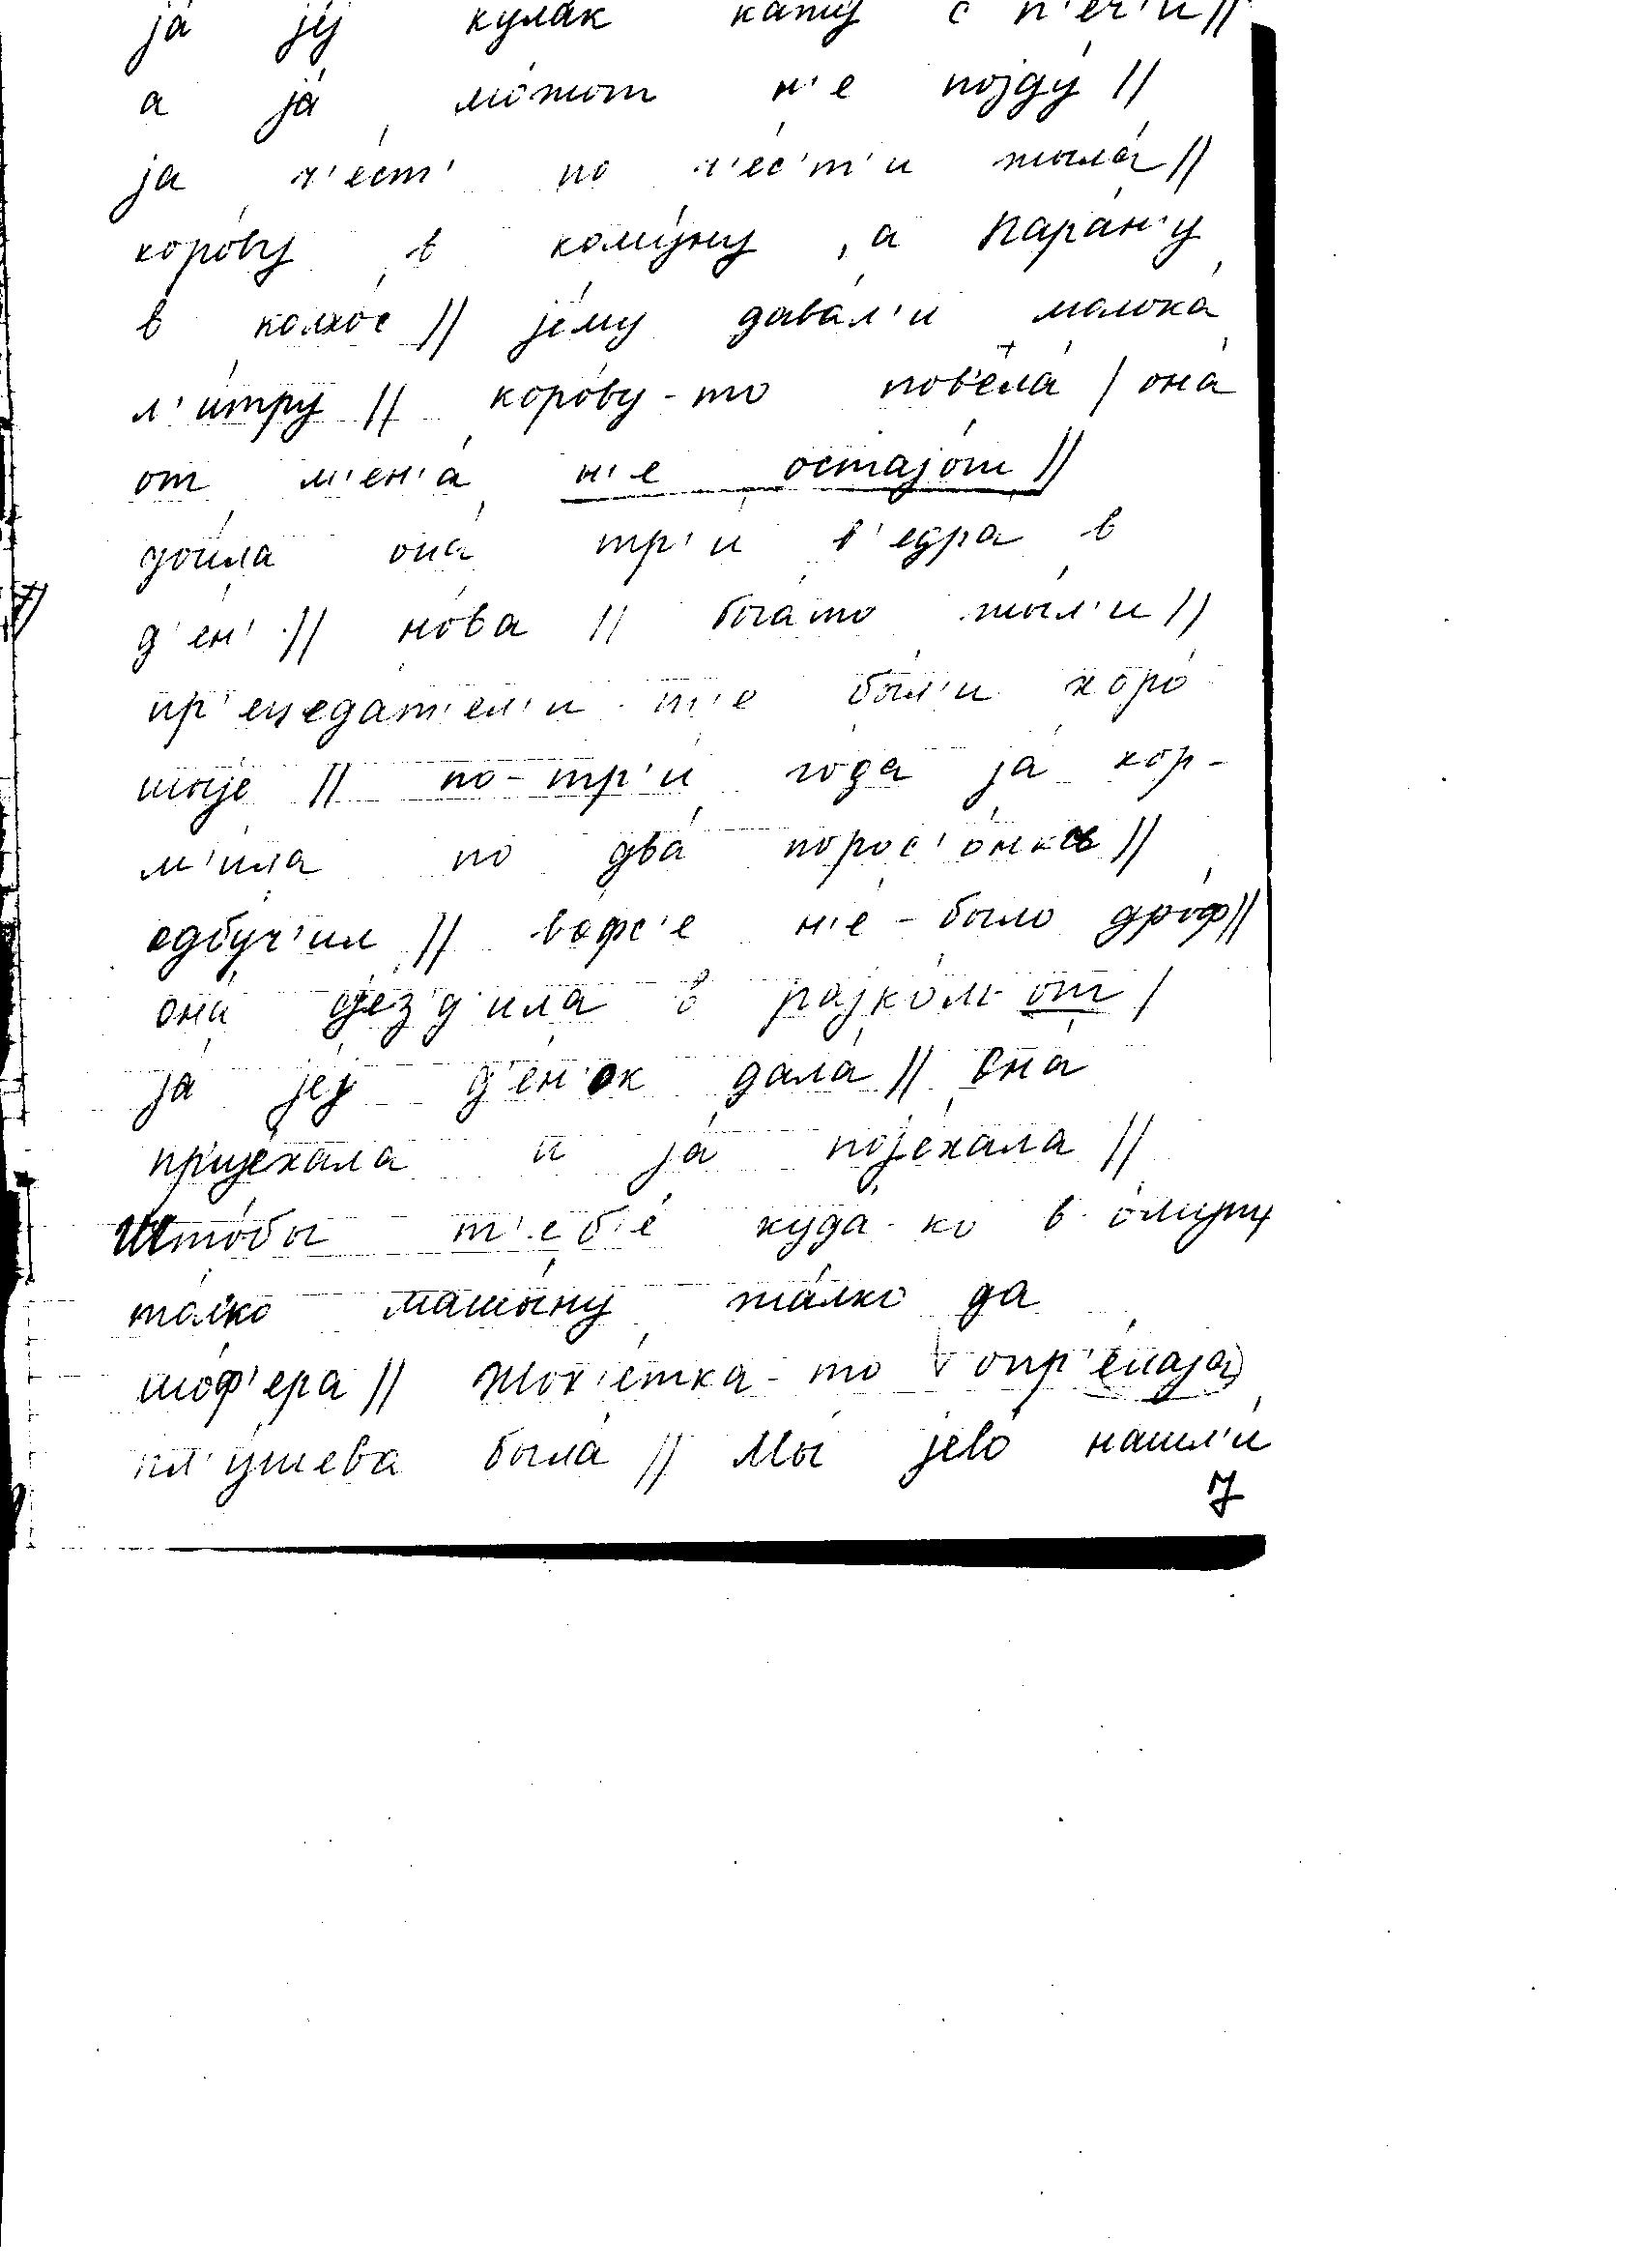 ја́ је́ј кула́к кажу́ с п'еч'и́ //
а ја́ мо́жот н'е појду́ //
ја ч'е́ст' по ч'е́с'т'и жыла́ //
коро́ву в кому́ну, а Пара́н'у
в колхо́с // је́му дава́л'и молока́
л'и́тру // коро́ву-то пов'ела́ / она́
от м'ен'а́ н'е остајо́т //
дои́ла она́ тр'и́ в'едра́ в
д'е́н' // но́ва // бога́то жы́л'и //
пр'ецеда́т'ел'и т'е бы́л'и хоро́
шыје // по-тр'и́ го́да ја́ кор-
м'и́ла по два́ порос'о́нка //
одбу́ч'ил // во́фс'е н'е́-было дро́ф //
она́ је́з'д'ила в рајко́м от /
ја́ је́ј д'е́н'ок дала́ // Она́
пр'ије́хала и ја́ поје́хала //
Што́бы т'еб'е́ куда́-ко в о́мут
то́лко машы́ну жа́лко да
шо́ф'ера // Жок'е́тка-то опр'е́лаја
пл'у́шева была́ // Мы́ јево́ нашл'и́
7